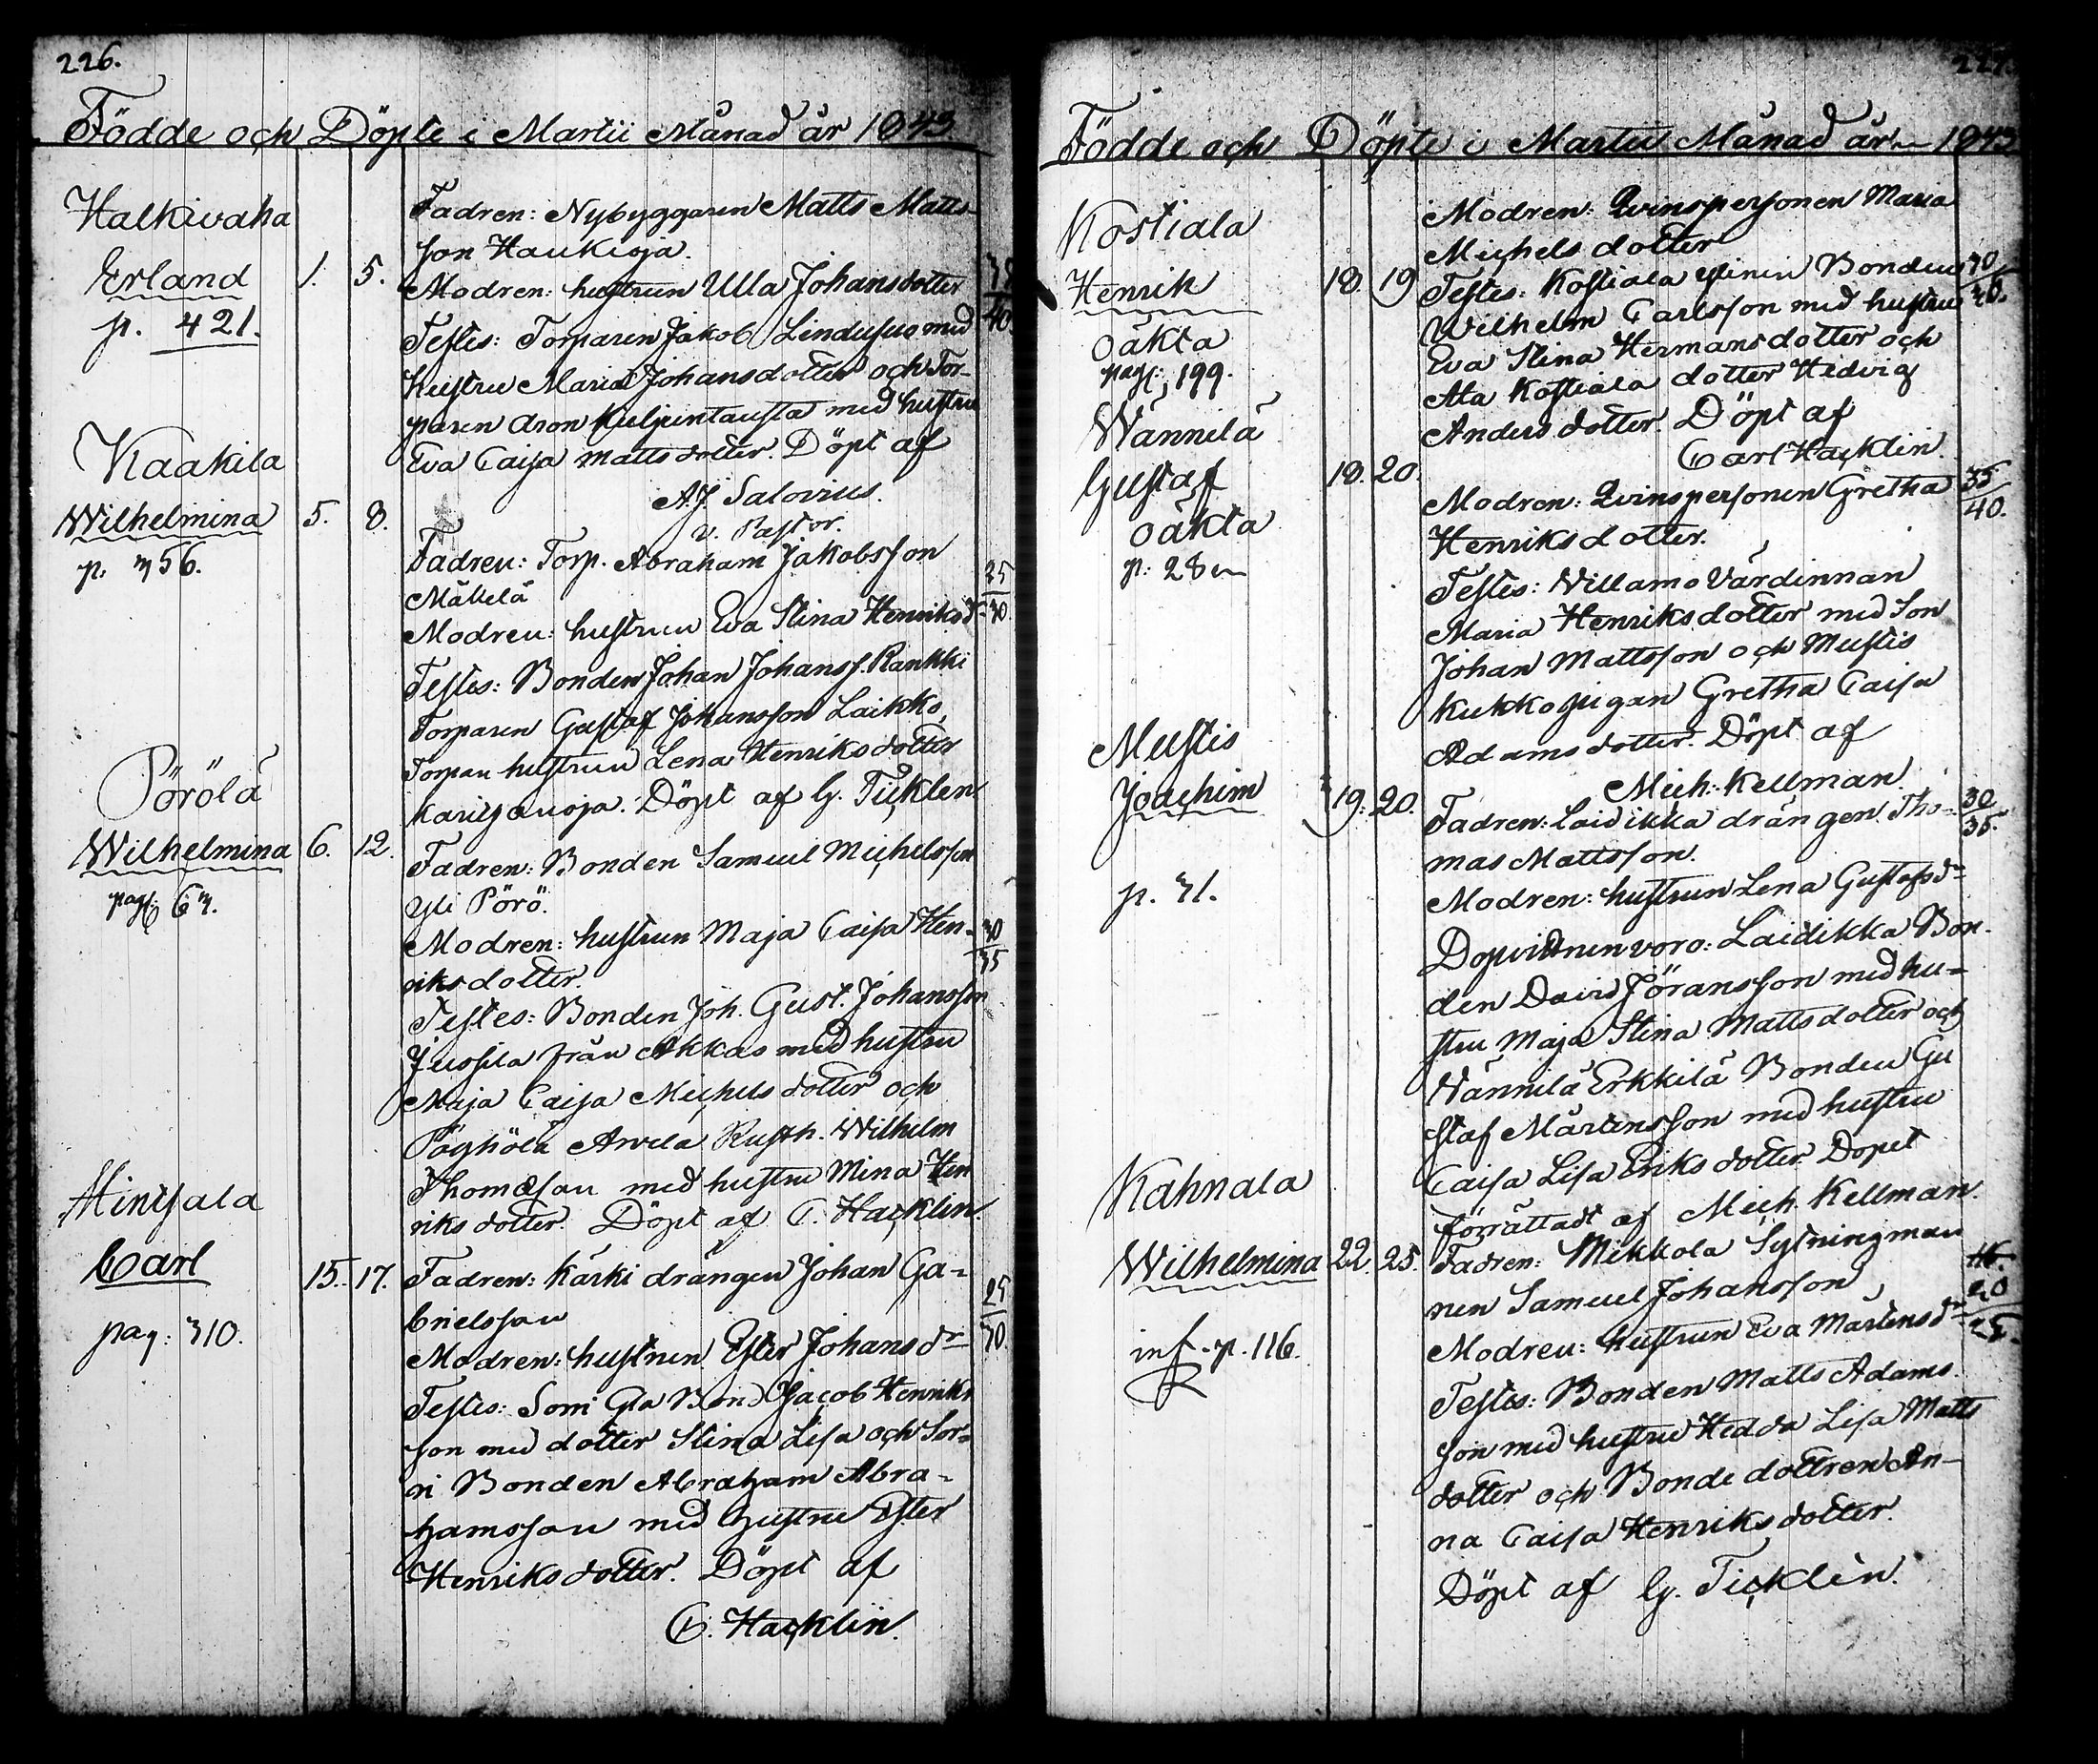 226.
Födde och Döpte i Martii Månad år 1843
Halkivaha
Erland 1. 5.
p. 421.
Fadren: Nybyggaren Matts Matts-
son Haukioja.
Modren: hustrun Ulla Johansdotter
40.
Testes: Torparen Jakob Lindusuo med
hustru Maria Johansdotter och Tor-
paren Aron Kuljuntausta med hustru
Eva Caisa Mattsdotter. Döpt af
A J. Salovius.
v. Pastor.
Kaakila
Wilhelmina 5. 8.
p. 356.
Fadren: Torp. Abraham Jakobsson
Mäkelä
Modren: hustrun Eva Stina Henriksdr
25
30.
Testes: Bonden Johan Johanss. Rankki
Torparen Gustaf Johansson Laikko,
Torpare hustrun Lena Henriksdotter
Karitsanoja. Döpt af G. Ticklén
Pörölä
Wilhelmina 6. 12.
pag: 63.
Fadren: Bonden Samuel Michelsson
Yli Pörö.
Modren: hustrun Maja Caisa Hen-
riksdotter.
30
35
Testes: Bonden Joh. Gust. Johansson
Jussila från Akkas med hustru
Maja Caisa Michelsdotter och
Pöghölä Arvela Rusth. Wilhelm
Thomasson med hustru Mina Hen
riksdotter. Döpt af C. Hacklin.
Mintsala
Carl 15. 17.
pag: 310.
Fadren: Kärki drängen Johan Ga-
brielsson
Modren: hustrun Ester Johansdr
25
30.
Testes: Somi Gla Bond Jacob Henriks
son med dotter Stina Lisa och Sor-
ri Bonden Abraham Abra-
hamsson med hustru Ester
Henriksdotter. Döpt af
C. Hacklin.
227.
Födde och Döpte i Martii Månad år 1843
Kostiala
Henrik 18. 19
oäkta
pag: 199.
Modren: Qvinspersonen Maria
Michelsdotter
30
40.
Testes: Kostiala Bonden
Wilhelm Carlsson med hustru
Eva Stina Hermansdotter och
Ala Kostiala dotter Hedvig
Andersdotter. Döpt af
Carl Hacklin
Wännilä
Gustaf 18. 20.
oäkta
p. 28
Modren: Qvinspersonen Gretha
Henriksdotter.
35
40.
Testes: Willamo Värdinnan
Maria Henriksdotter med Son
Johan Mattsson och Mustis
Kukko pigan Gretha Caisa
Adamsdotter. Döpt af
Mich: Kellman.
Mustis
Joachim 19. 20.
p. 31.
Fadren: Laidikka drängen Tho-
mas Mattsson.
30
35.
Modren: hustrun Lena Gustafsdr
Dopvittnen voro: Laidikka Bon-
den David Jöransson med hu-
stru Maja Stina Mattsdotter och
Wännilä Erkkilä Bonden Gu
staf Mårtensson med hustru
Caisa Lisa Eriksdotter. Dopet
förrättadt af Mich. Kellman.
Kahnala
Wilhelmina 22. 25.
inf. p. 116.
Fadren: Mikkola Sytningman
nen Samuel Johansson
Modren: hustrun Eva Mårtensdr
20
25.
Testes: Bonden Matts Adams
son med hustru Hedda Lisa Matts
dotter och Bonde dottren An-
na Caisa Henriksdotter.
Döpt af G. Ticklén.